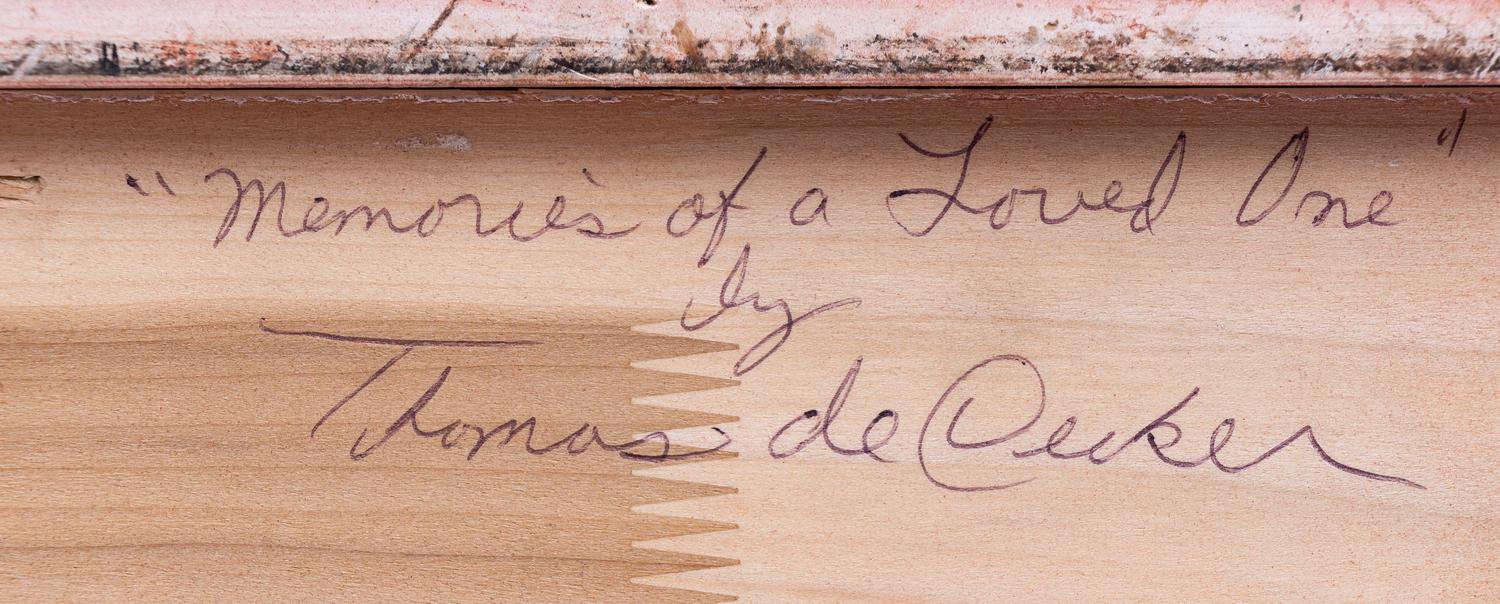 "Memories of a Loved One"
by
Thomas de Decker